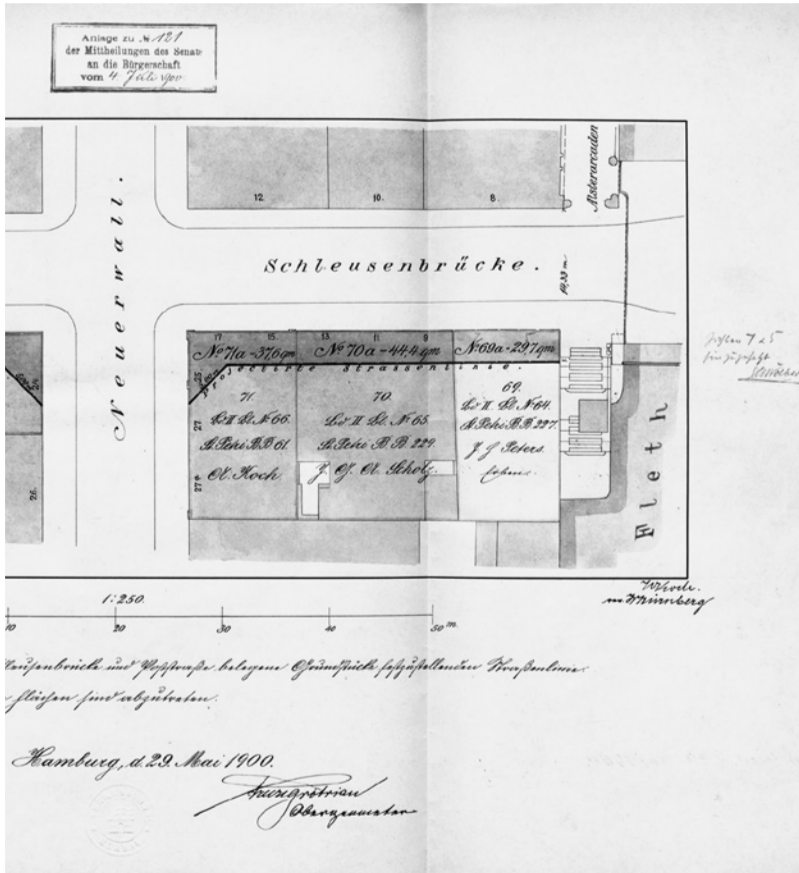 Anlage zu № 121
der Mittheilungen des Senats
an die Bürgerschaft
vom 4. Juli 1900
12.
10.
8.
Alsterarcaden
Neuerwall.
Schleusenbrücke.
17
15.
13
11
9
№ 71a - 37,6 qm
№ 70a - 44,4 qm
№ 69a - 29,7 qm
projectirte Strassenlinie.
25.
24.
26.
27.
27a
71.
Lit II. Bl. № 66.
St. Petri B.B 61.
A. Koch
70.
Lit II. Bl. № 65
St. Petri B.B 229.
J. G. A. Scholz.
69.
Lit II. Bl. № 64.
St. Petri B.B 227.
J. J. Peters
Erben.
Fleth
1:250.
10
20
30
40
50 m.
leusenbrücke und Poststraße belegene Grundstücke festzustellenden Straßenlinie.
Flächen sind abzutreten.
Hamburg, d. 29. Mai 1900.
Obergeometer